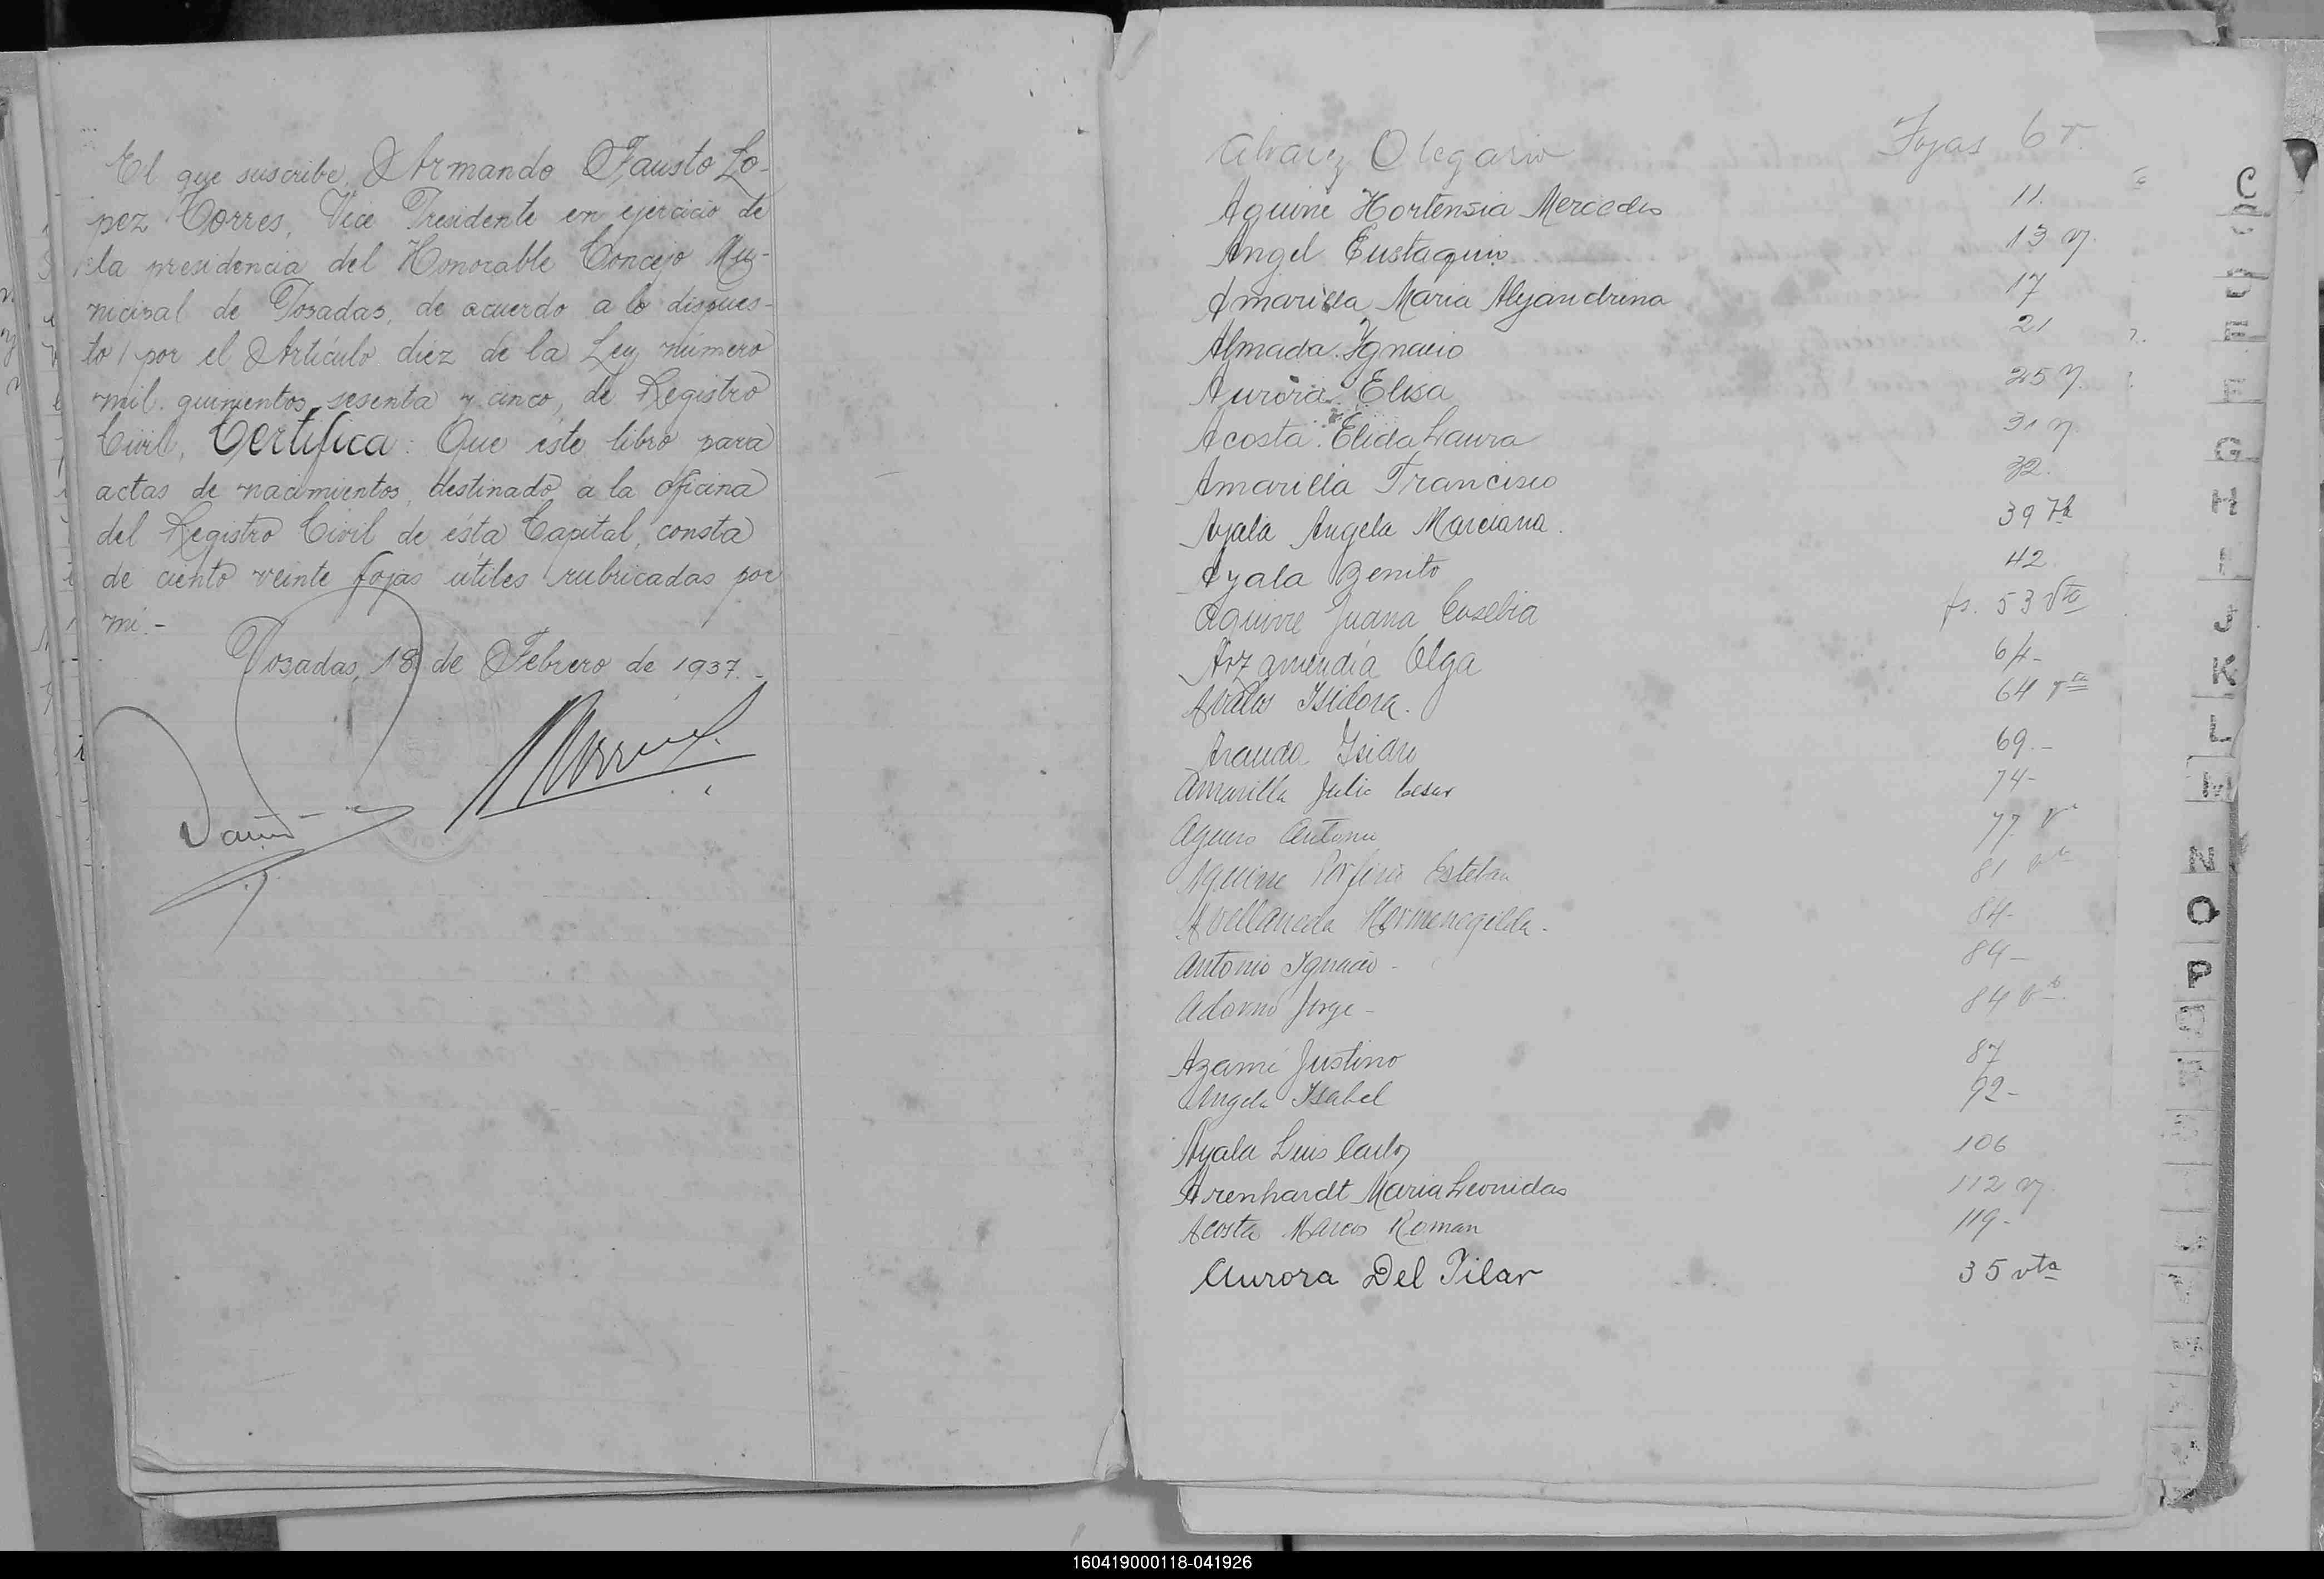 El que suscribe, Armando Fausto Lo-
pez Torres, Vice Presidente en ejercicio de
la presidencia del Honorable Concejo Mu-
nicipal de Posadas, de acuerdo a lo dispues-
to por el Artículo diez de la Ley número
mil quinientos sesenta y cinco, de Registro
Civil, Certifica: Que éste libro para
actas de nacimientos, destinado a la oficina
del Registro Civil de ésta Capital, consta
de ciento veinte fojas útiles rubricadas por
mi.-
Posadas, 18 de Febrero de 1937.-
Alvarez Olegario Fojas 6 v.
Aguirre Hortensia Mercedes 11.
Angel Eustaquio 13 v.
Amarilla Maria Alejandrina 17
Almada Ygnacio 21
Aurora Elisa 25 v.
Acosta Elida Laura 31 v
Amarilla Francisco 32.
Ayala Angela Marciana. 39 vta
Ayala Benito 42
Aguirre Juana Eusebia fs. 53 vta
Arzamendia Olga 64-
Avalos Isidora. 64 vta
Aranda Isidro 69.-
Amarilla Julio Cesar 74-
Aguero Antonio 77 v
Aguirre Porfirio Esteban 81 vta
Avellaneda Hermenegilda. 84-
Antonio Ignacio - 84-
Adorno Jorge - 84 vta
Azami Justino 87
Angela Isabel 92-
Ayala Luis Carlos 106
Arenhardt Maria Leonidas 112 v
Acosta Marcos Roman 119-
Aurora Del Pilar 35 vta
C
D
E
F
G
H
I
J
K
L
M
N
O
P
160419000118-041926